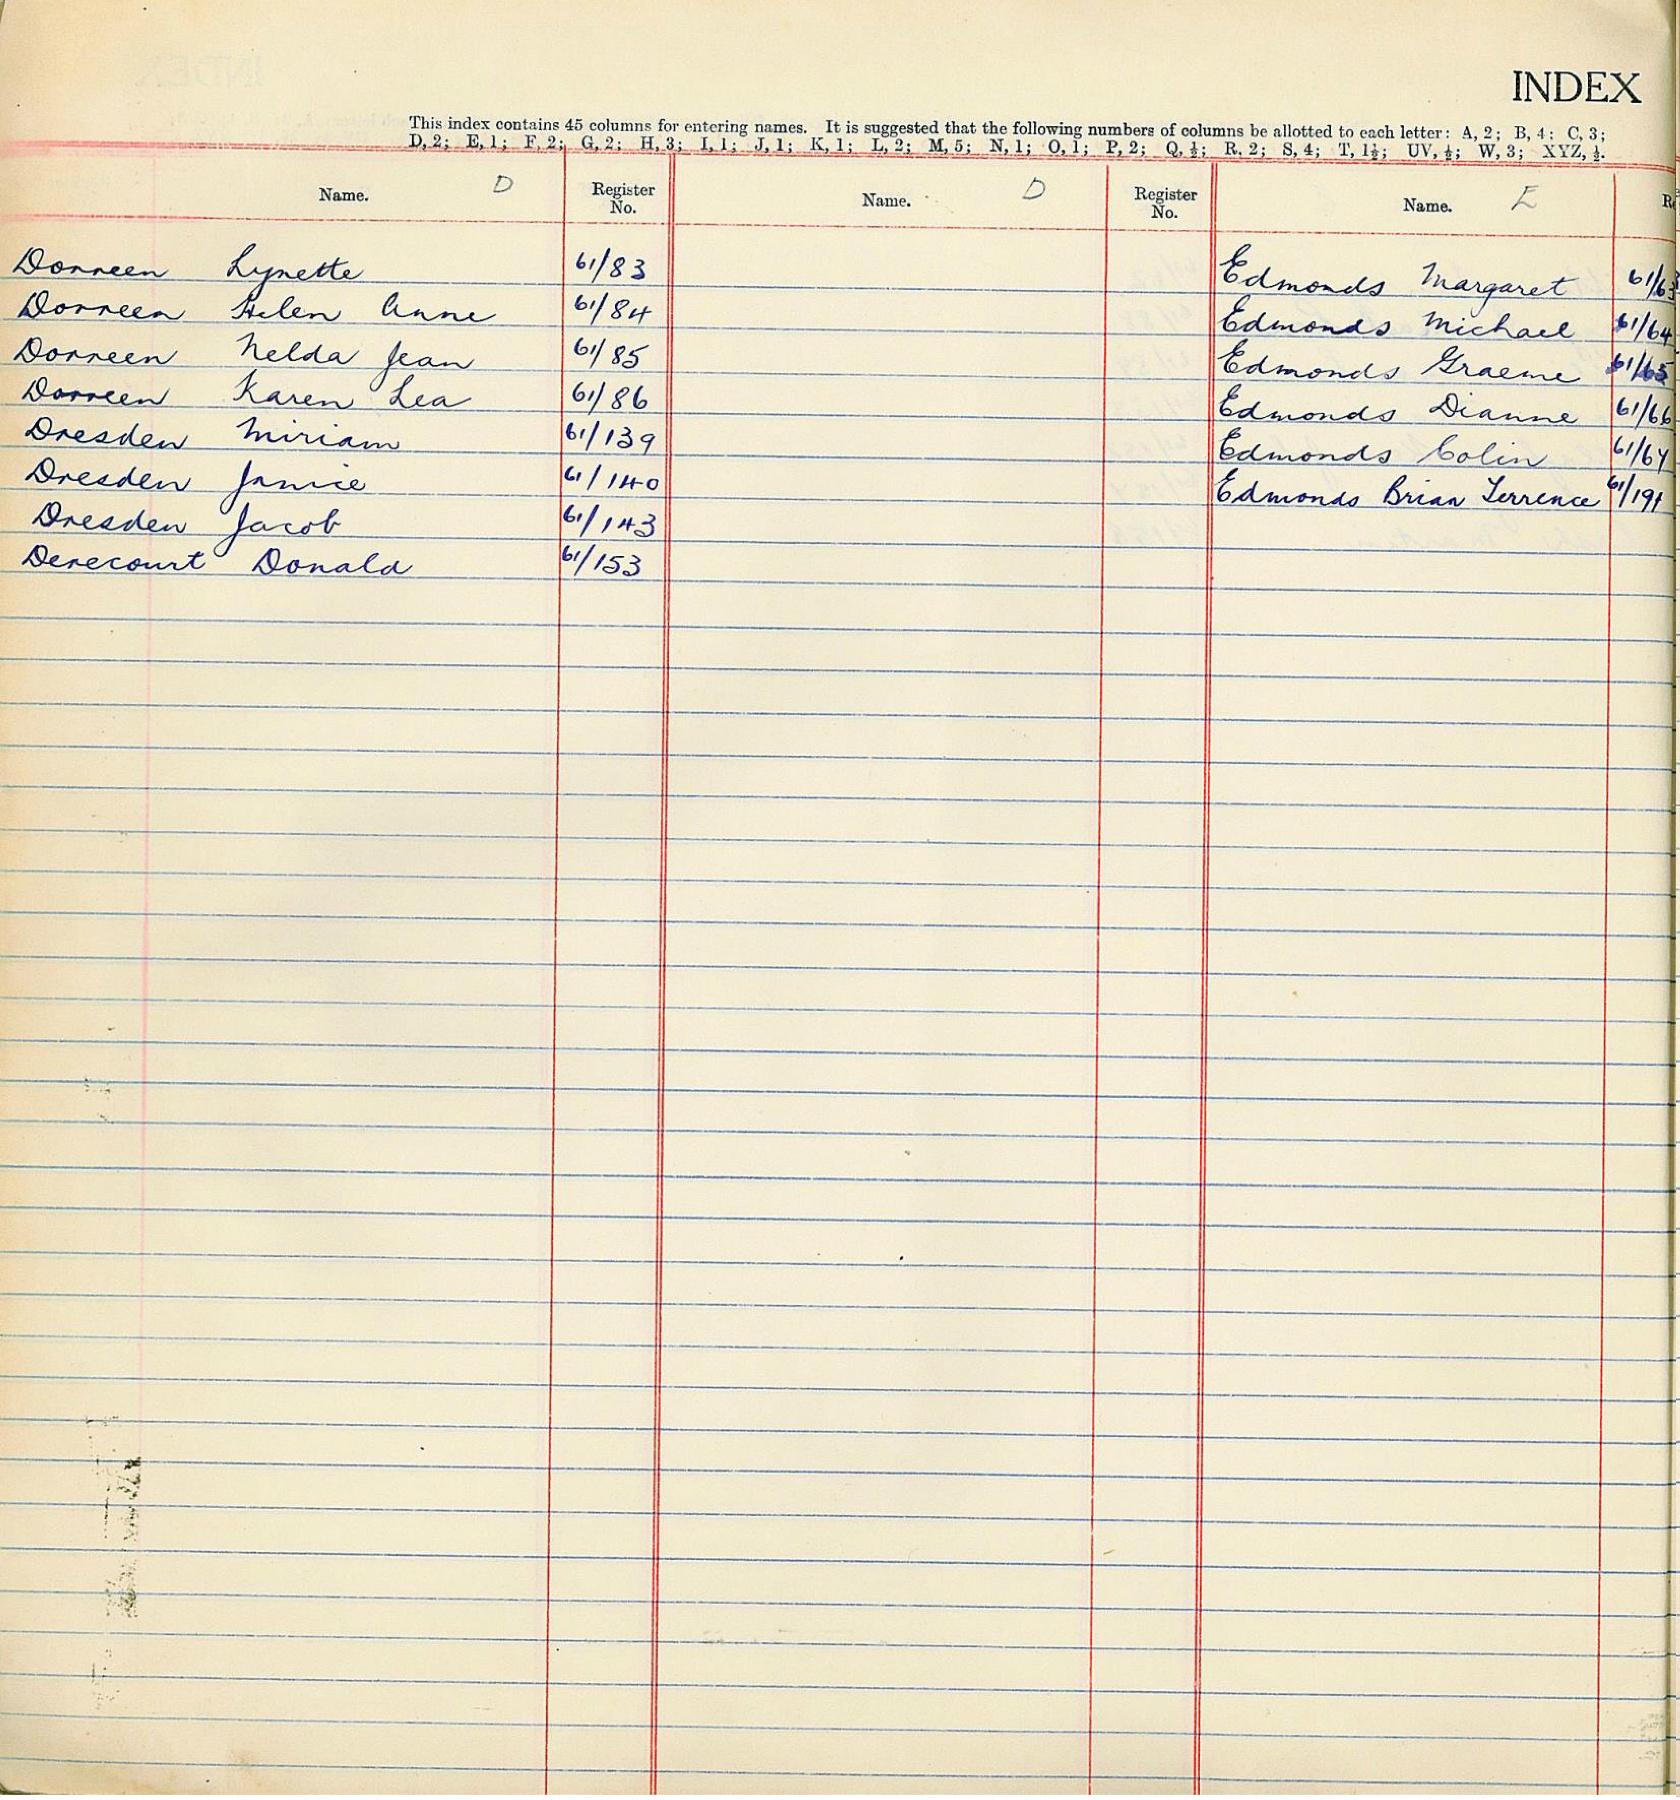 INDEX
This index contains 45 columns for entering names. It is suggested that the following numbers of columns be allotted to each letter: A, 2; B, 4; C, 3;
D, 2; E, 1; F, 2; G, 2; H, 3; I, 1; J, 1; K, 1; L, 2; M, 5; N, 1; O, 1; P, 2; Q, ½; R, 2; S, 4; T, 1½; UV, ½; W, 3; XYZ, ½.
Name. D Register No.
Dorreen Lynette 61/83
Dorreen Helen Anne 61/84
Dorreen Nelda Jean 61/85
Dorreen Karen Lea 61/86
Dresden Miriam 61/139
Dresden Janice 61/140
Dresden Jacob 61/143
Derecourt Donald 61/153
Name. D Register No.
Name. E
Edmonds Margaret 61/63
Edmonds Michael 61/64
Edmonds Graeme 61/65
Edmonds Dianne 61/66
Edmonds Colin 61/67
Edmonds Brian Terrence